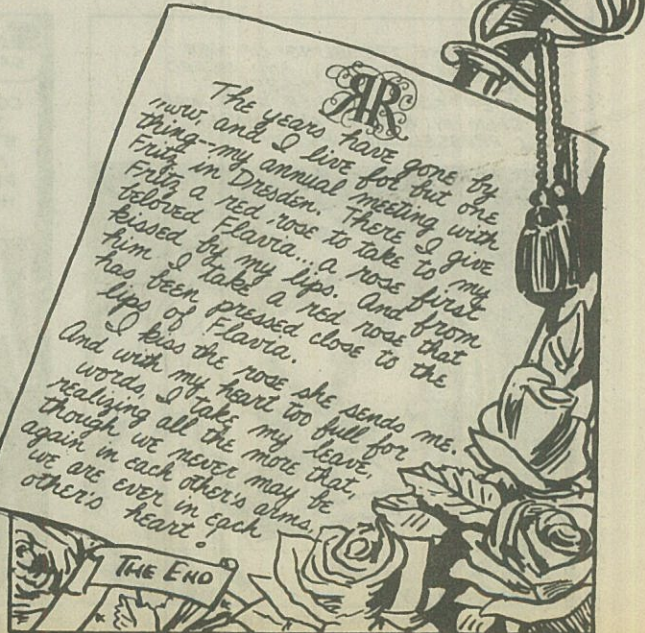 RR
The years have gone by
now, and I live for but one
thing--my annual meeting with
Fritz in Dresden. There I give
Fritz a red rose to take to my
beloved Flavia...a rose first
kissed by my lips. And from
him I take a red rose that
has been pressed close to the
lips of Flavia.
I kiss the rose she sends me.
And with my heart too full for
words, I take my leave,
realizing all the more that,
though we never may be
again in each other's arms,
we are ever in each
other's heart!
THE END